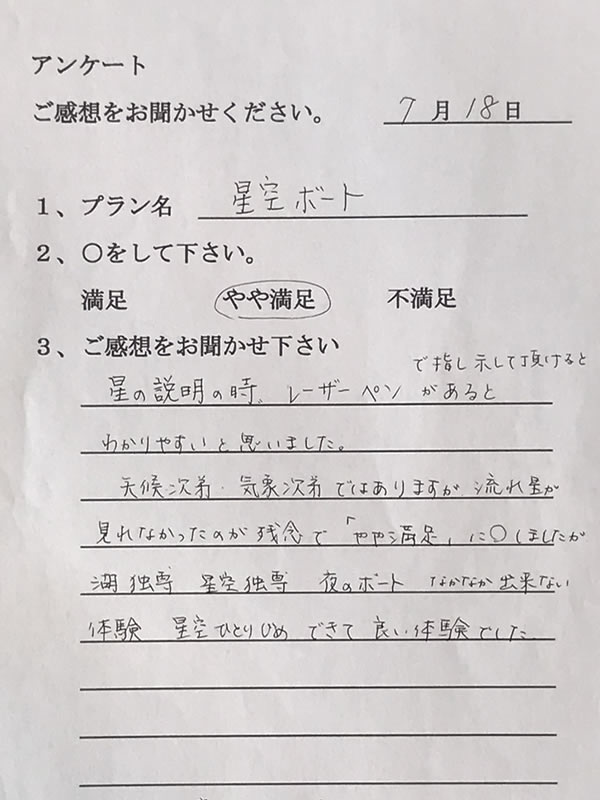 アンケート
ご感想をお聞かせください。
7月18日
1、プラン名 星空ボート
2、〇をして下さい。
満足 やや満足 不満足
3、ご感想をお聞かせ下さい
で指し示して頂けると
星の説明の時、レーザーペン があると
わかりやすいと思いました。
天候次第・気象次第ではありますが 流れ星が
見れなかったのが残念で「やや満足」に〇しましたが
湖独専 星空独専 夜のボート なかなか出来ない
体験 星空ひとりじめ できて 良い体験でした